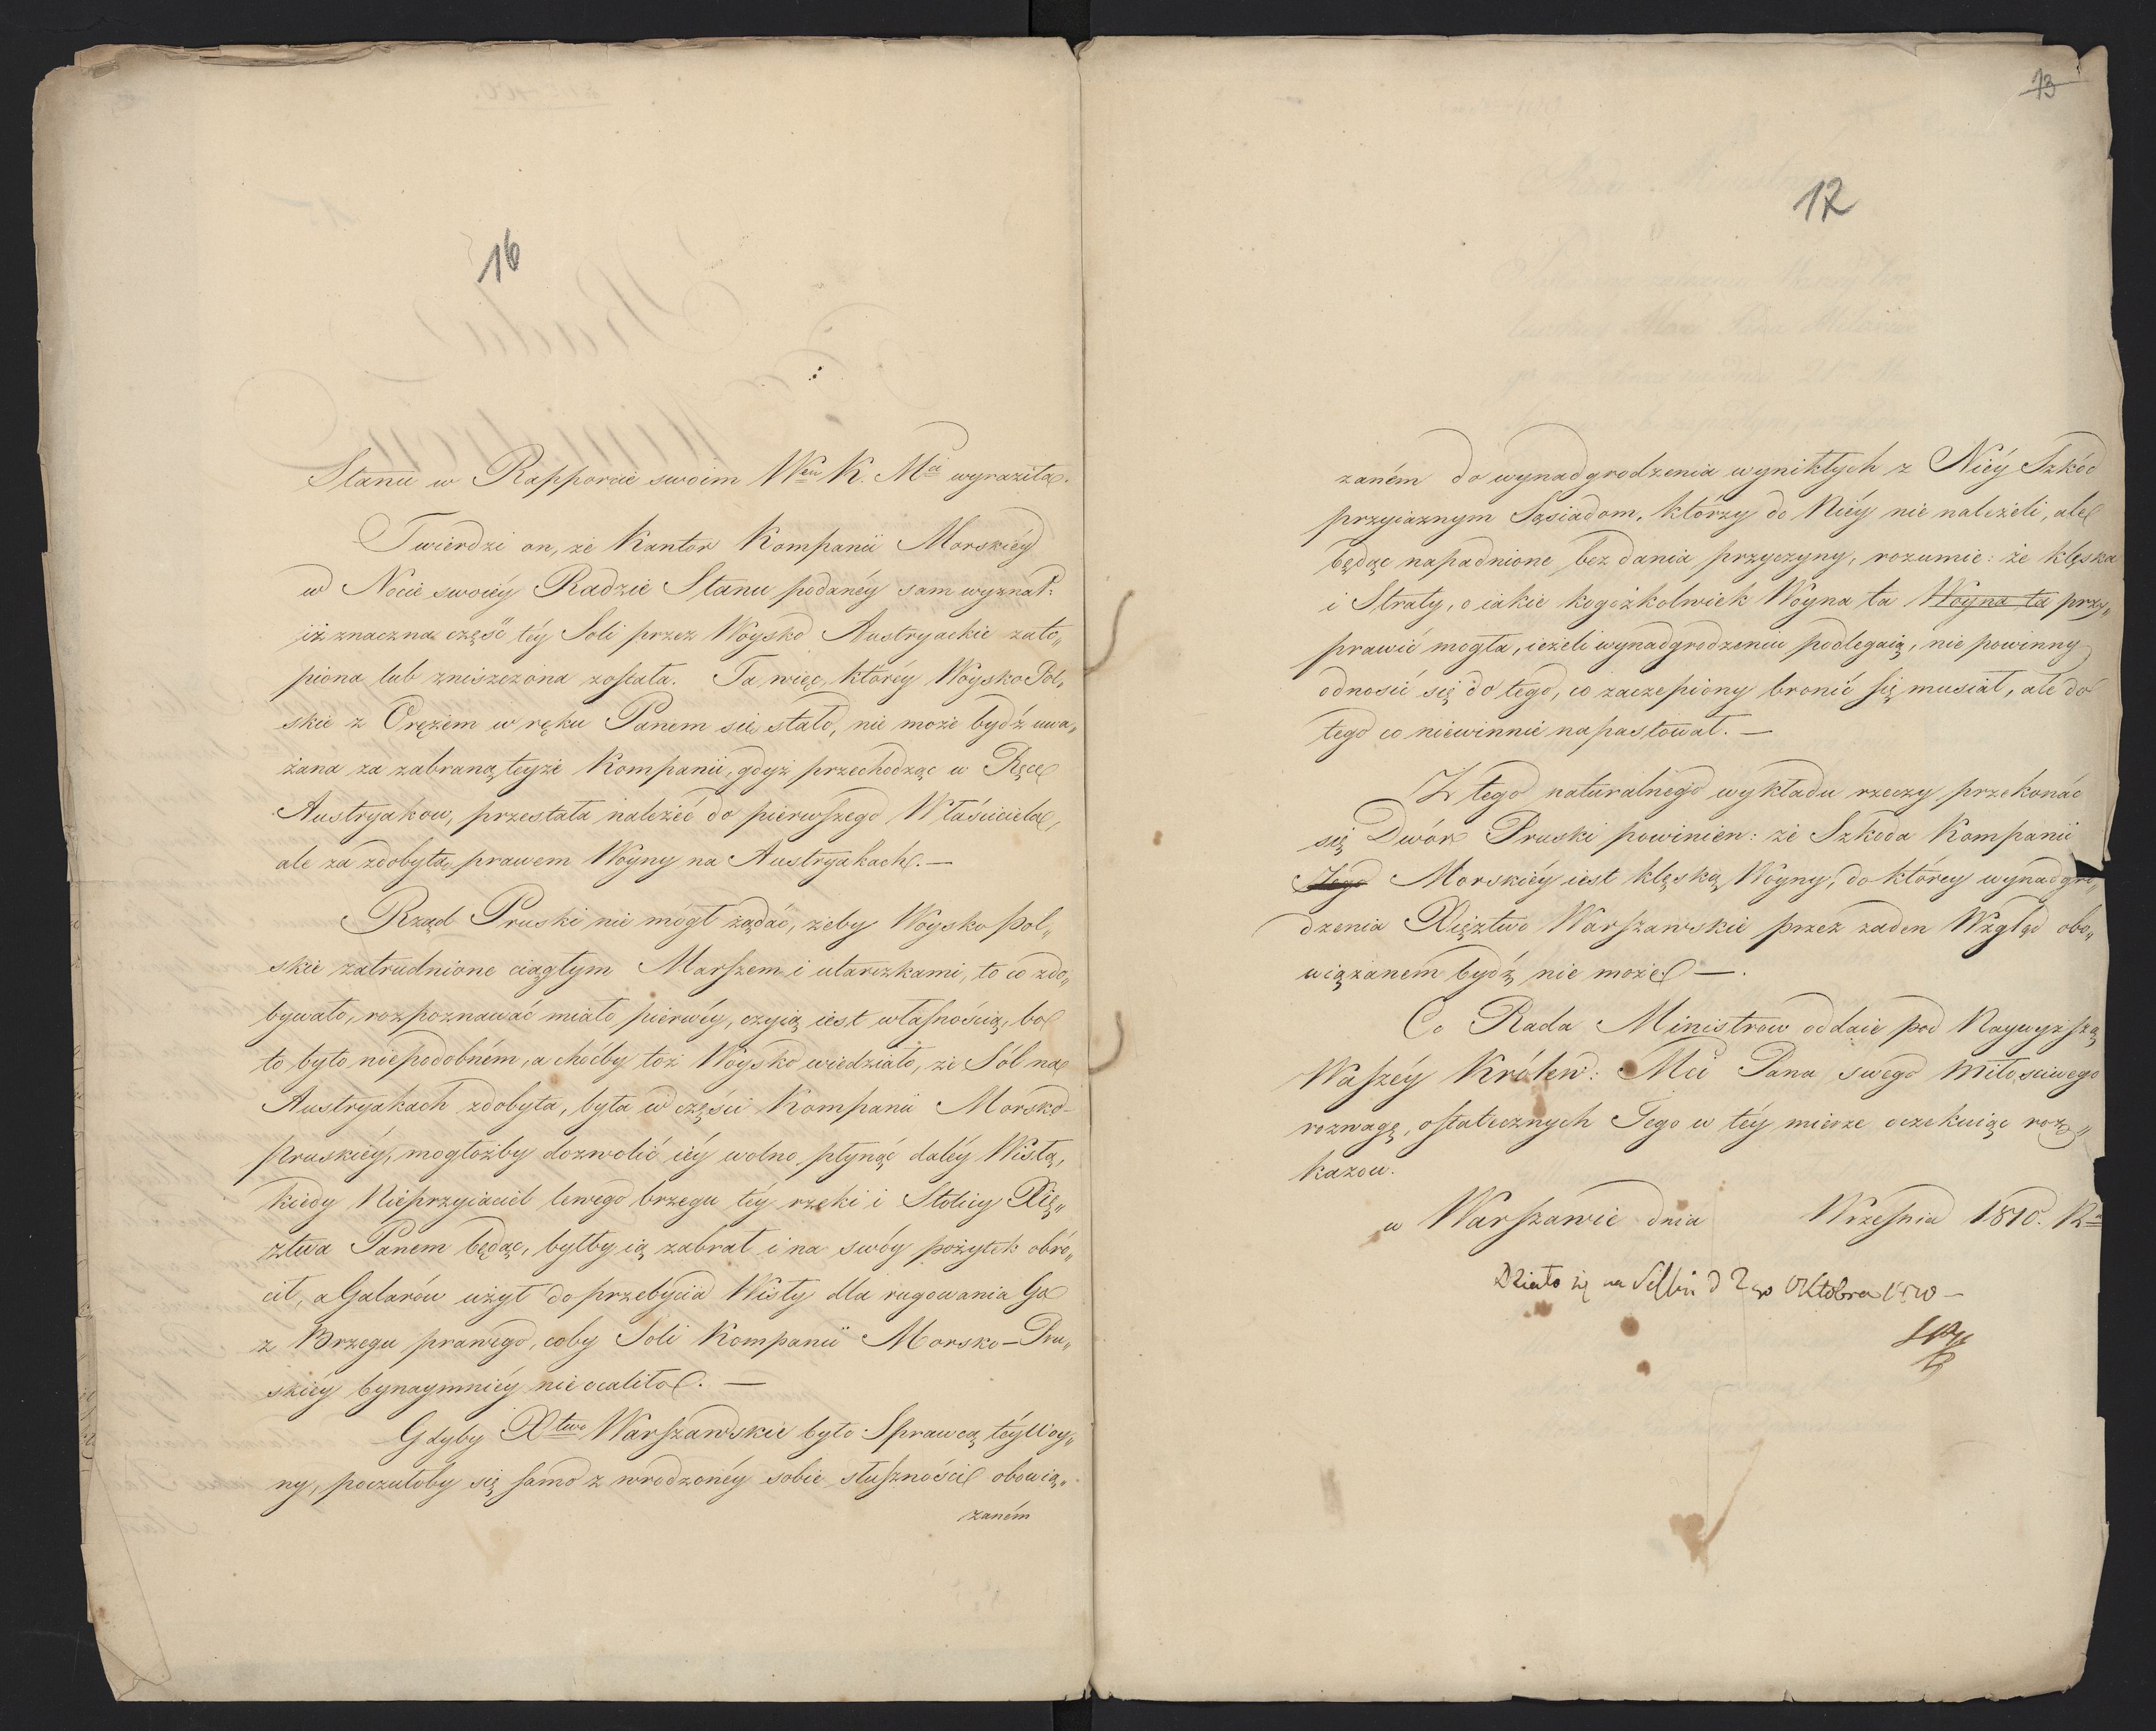 16
Stanu w Rapporcie swoim Wéu K. Mci wyraziła.
Twierdzi on, że Kantor Kompanii Morskiéy
w Nocie swoiéy Radzie Stanu podanéy sam wyznał:
iż znaczna część téy Soli przez Woysko Austryackie zato„
piona lub zniszczona została. Ta więc, któréy Woysko Pol„
skie z Orężem w ręku Panem się stało, nie może bydź uwa„
żana za zabraną teyże Kompanii, gdyż przechodząc w Ręce
Austryakow, przestała należéć do pierwszego Właściciela,
ale za zdobytą prawem Woyny na Austryakach. —
Rząd Pruski nie mógł żądać, żeby Woysko pol„
skie zatrudnione ciągłym Marszem i utarczkami, to co zdo„
bywało, rozpoznawać miało pierwéy, czyią iest własnością, bo
to było niepodobném, a choćby toż Woysko wiedziało, że Sól na
Austryakach zdobyta, była w części Kompanii Morsko-
pruskiéy, mogłożby dozwolić iéy wolno płynąć daléy Wisłą,
kiedy Nieprzyiaciel lewego brzegu téy rzeki i Stolicy Xię„
ztwa Panem będąc, byłby ią zabrał i na swóy pożytek obró„
cił, a Galarów użył do przebycia Wisły dla rugowania Go
z Brzegu prawego, coby Soli Kompanii Morsko-Pru„
skiéy bynaymniéy nie ocaliło. —
Gdyby Xtwo Warszawskie było Sprawcą téy Woy„
ny, poczułoby się samo z wrodzonéy sobie słuszności obowią„
zaném
13
17
zaném do wynadgrodzenia wynikłych z Niéy Szkód
przyiaznym Sąsiadom, którzy do Niéy nie należeli, ale
będąc napadnione bez dania przyczyny, rozumie: że klęska
i Straty, o iakie kogożkolwiek Woyna ta Woyna ta przy„
prawić mogła, ieżeli wynadgrodzeniu podlegaią, nie powinny
odnosić się do tego, co zaczepiony bronić się musiał, ale do
tego co niewinnie napastował. —
Z tego naturalnego wykładu rzeczy przekonać
się Dwór Pruski powinien: że Szkoda Kompanii
Jego Morskiéy iest klęską Woyny, do któréy wynadgro„
dzenia Xięztwo Warszawskie przez żaden Wzgląd obo„
wiązanem bydź nie może —.
Co Rada Ministrow oddaie pod Naywyższą
Waszéy Królew: Mci Pana swego Miłosciwego
rozwagę, ostatecznych Jego w téy mierze oczekuiąc roz„
kazow.
w Warszawie dnia Września 1810. R.
Działo się na Sessii d 2go Oktobra 1810 —